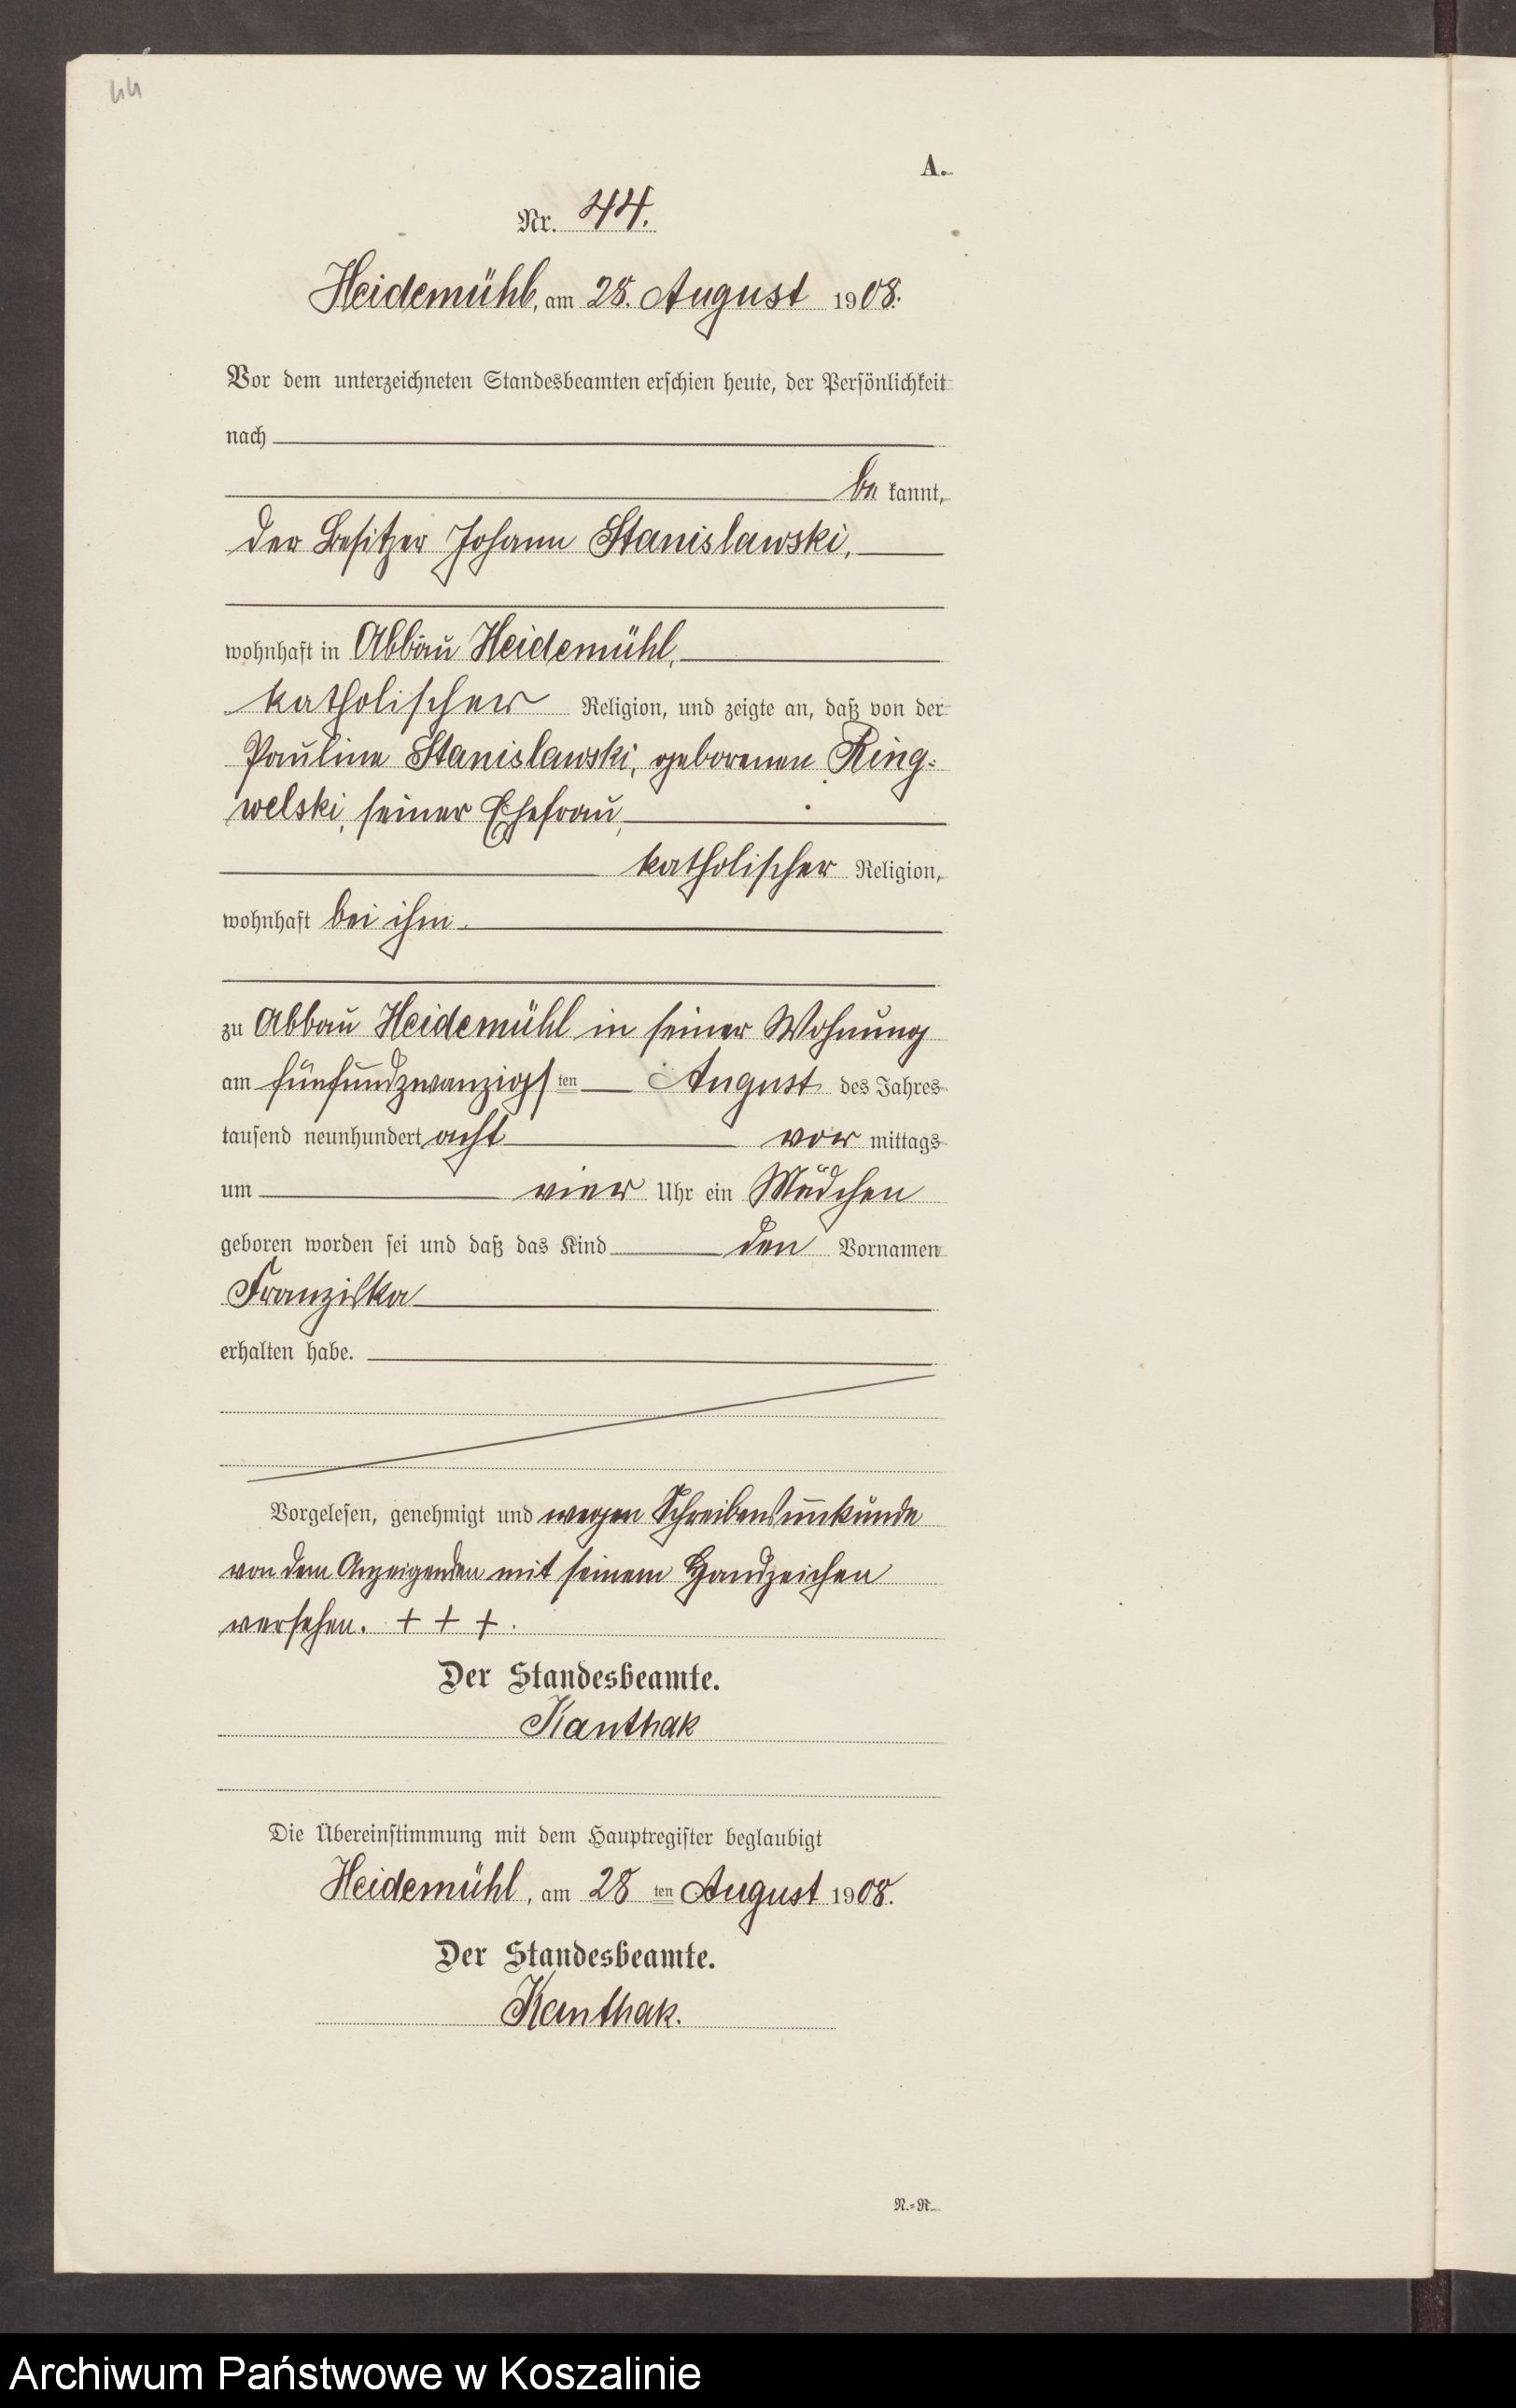 44
A.
Nr. 44.
Heidemühl, am 28. August 1908.
Vor dem unterzeichneten Standesbeamten erschien heute, der Persönlichkeit
nach
be kannt,
der Besitzer Johann Stanislawski,
wohnhaft in Abbau Heidemühl,
katholischer Religion, und zeigte an, daß von der
Pauline Stanislawski, geborenen Ring-
welski, seiner Ehefrau,
katholischer Religion,
wohnhaft bei ihm.
zu Abbau Heidemühl in seiner Wohnung
am fünfundzwanzigsten August des Jahres
tausend neunhundert acht vor mittags
um vier Uhr ein Mädchen
geboren worden sei und daß das Kind den Vornamen
Franziska
erhalten habe.
Vorgelesen, genehmigt und wegen Schreibensunkunde
von dem Anzeigenden mit seinem Handzeichen
versehen. + + +.
Der Standesbeamte.
Kanthak
Die Übereinstimmung mit dem Hauptregister beglaubigt
Heidemühl, am 28 ten August 1908.
Der Standesbeamte.
Kanthak.
N.-R.
Archiwum Państwowe w Koszalinie